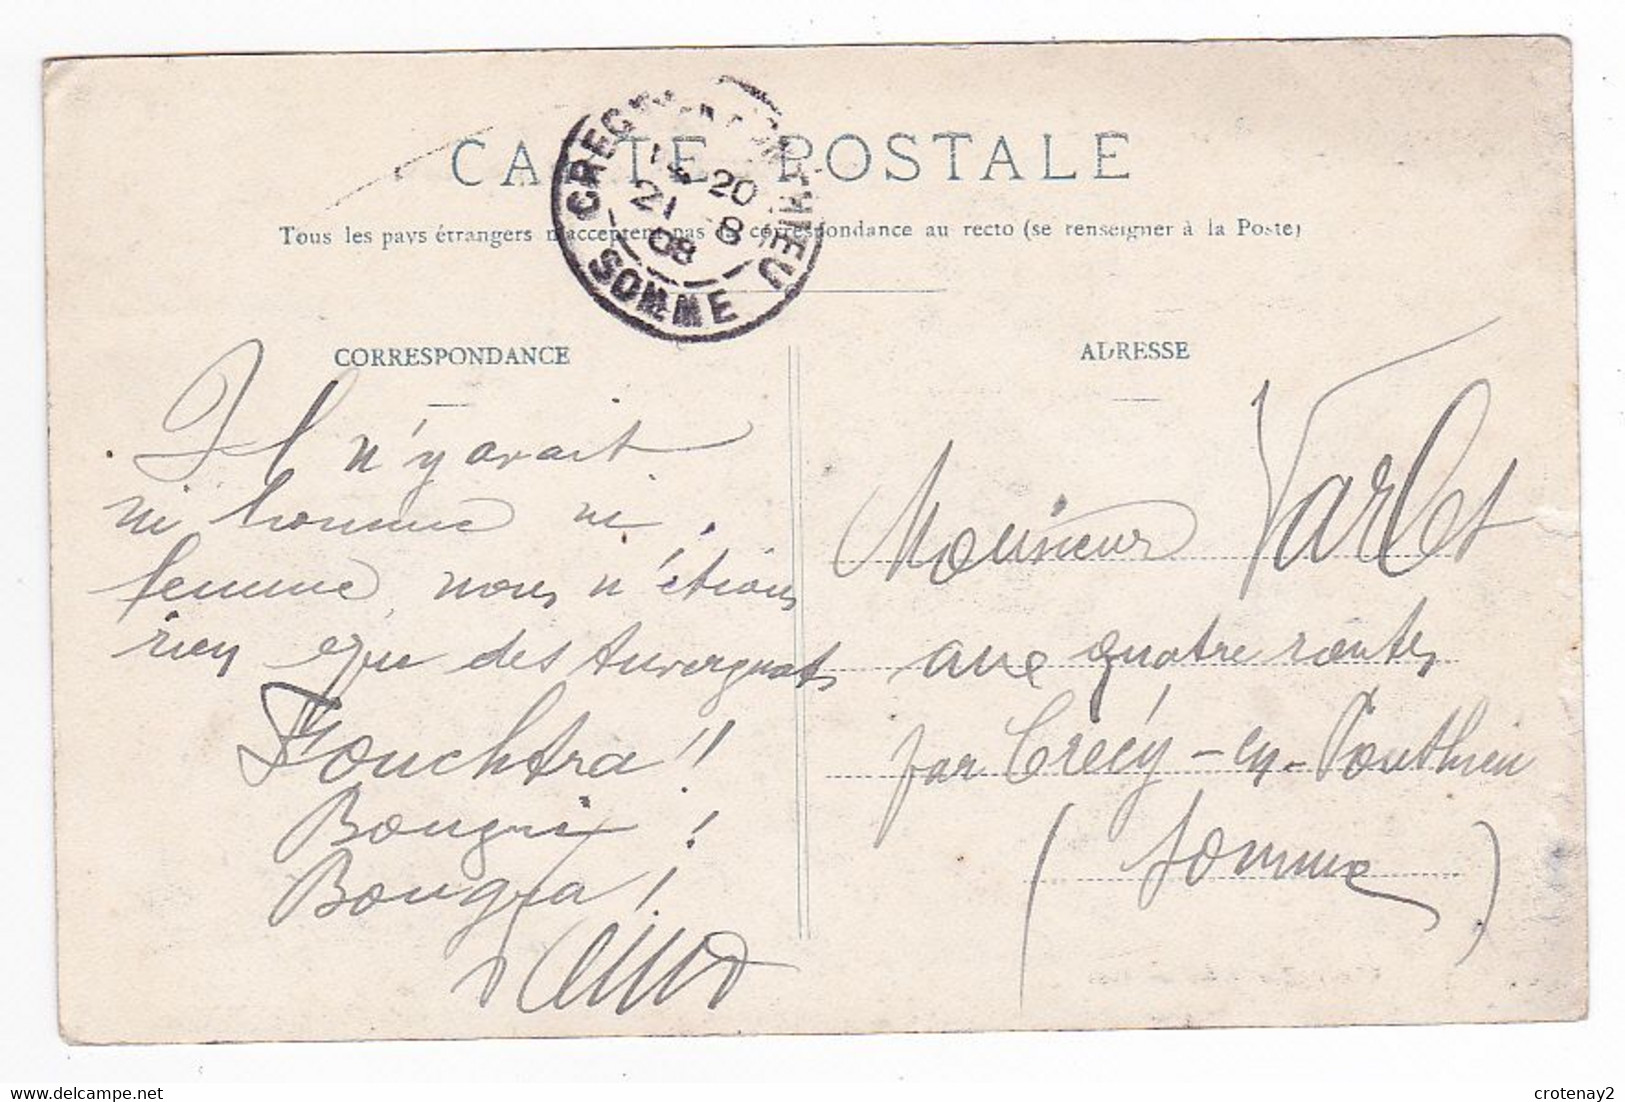 CARTE POSTALE
Tous les pays étrangers n'acceptent pas de correspondance au recto (se renseigner à la Poste)
CRECY-EN-PONTHIEU
20
21 8
08
SOMME
CORRESPONDANCE
Il n'y avait
ni homme ni
femme, nous n'étions
rien que des Auvergnats
Fouchtra!!
Bougri!
Bougra!
ADRESSE
Monsieur Varlet
aux quatre routes
par Crécy-en-Ponthieu
(Somme)
delcampe.net
crotenay2